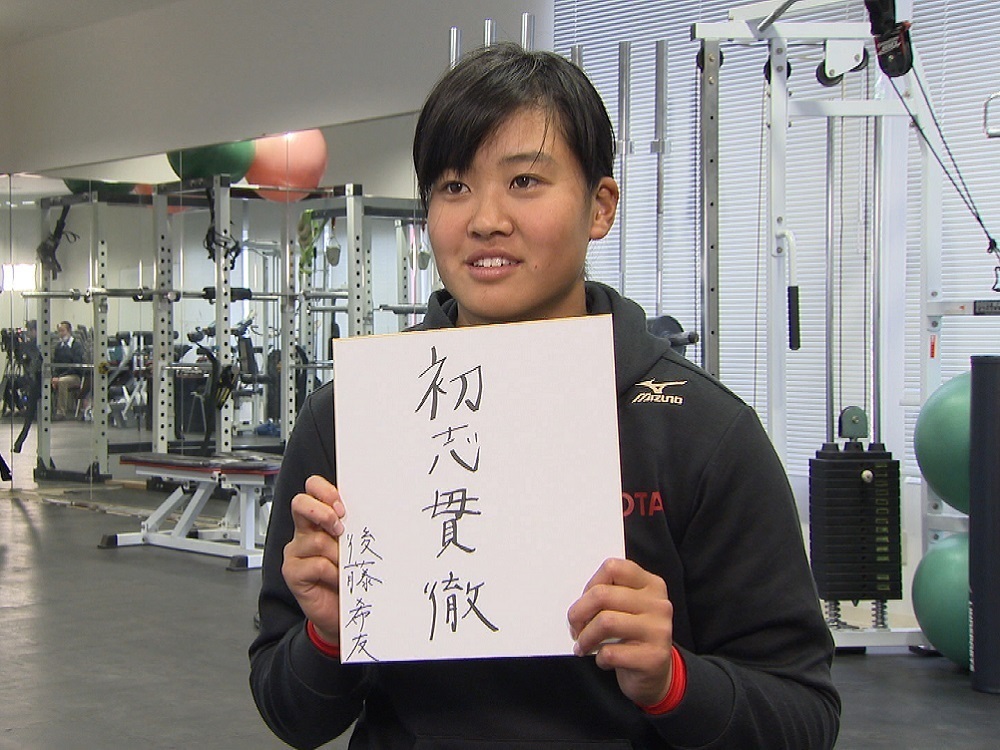 初志貫徹
後藤希友
MIZUNO
OTA